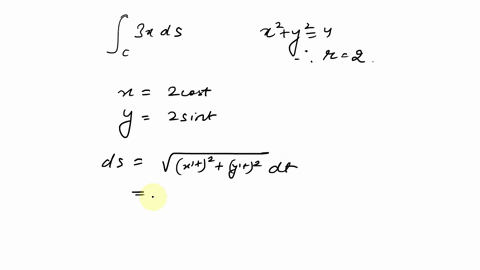 ∫_C 3x ds    x² + y² = 4
∴ r = 2.
x = 2cost
y = 2sint
ds = √((x't)² + (y't)²) dt
=